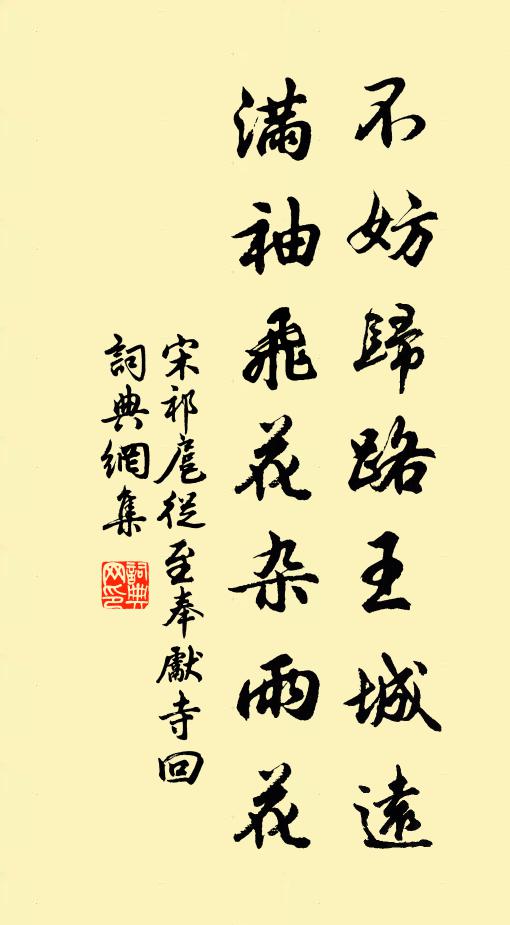 不妨歸路王城遠
滿袖飛花杂雨花
宋祁扈從至奉獻寺回
詞典網集
詞典网印